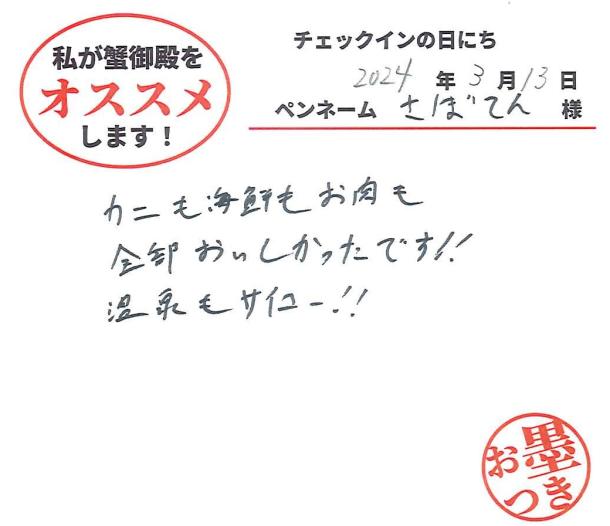 私が蟹御殿を
オススメ
します！
チェックインの日にち
2024 年 3 月 13 日
ペンネーム さぼてん 様
カニも海鮮もお肉も
全部おいしかったです!!
温泉もサイコー!!
お墨
つき